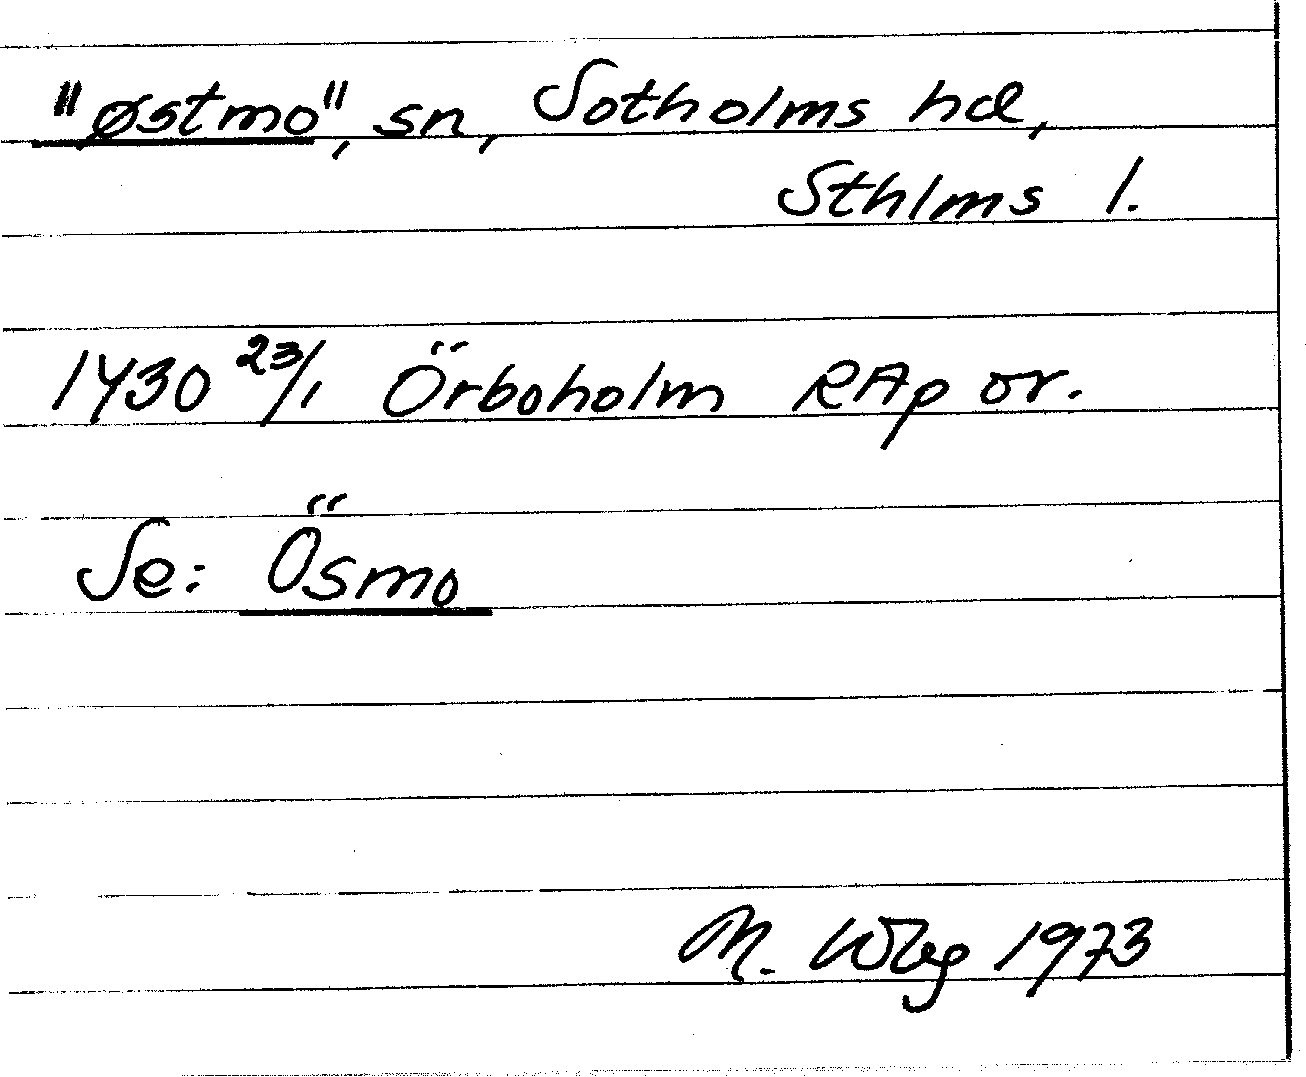 "østmo", sn, Sotholms hd,
Sthlms l.
1430 23/1 Örboholm RAp or.
Se: Ösmo
M. Wbg 1973